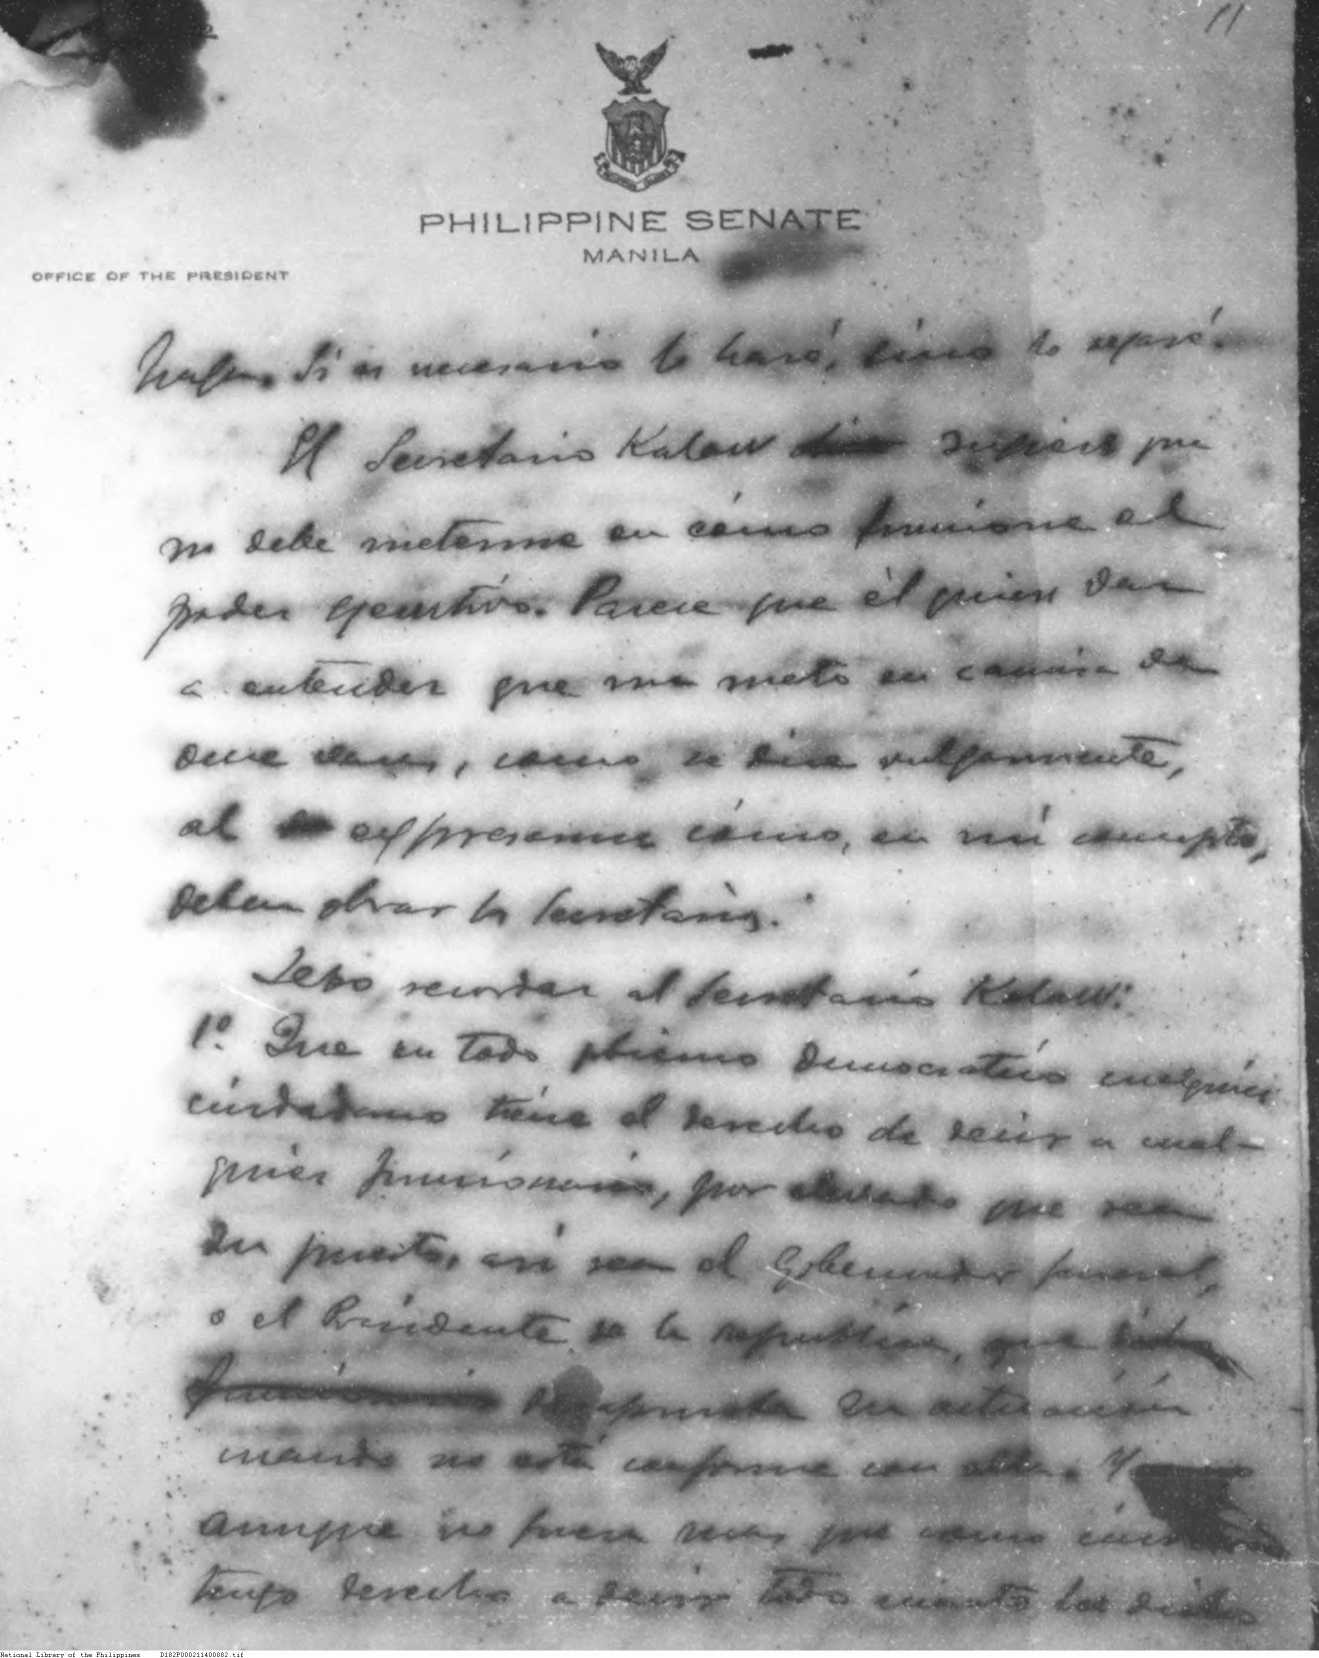 11
PHILIPPINE SENATE
MANILA
OFFICE OF THE PRESIDENT
Si es necesario lo haré, sino lo
El Secretario Kalaw sugiere que
no debe meterme en cómo funciona el
poder ejecutivo. Parece que él quiere dar
a entender que me meto en camisa de
once varas, como se dice vulgarmente,
al expresarme cómo, en mi concepto,
deben obrar los Secretarios.
Debo recordar al Secretario Kalaw:
1º. Que en todo gobierno democratico cualquier
ciudadano tiene el derecho de decir a cual-
quier funcionario, por elevado que sea
su puesto, asi sea el Gobernador General,
o el Presidente de la republica, que
funcionario desaprueba su actuación
cuando no está conforme con ella. Y
aunque no fuera mas que como
tengo derecho a decir todo cuanto he dicho
National Library of the Philippines D182P000211400082.tif